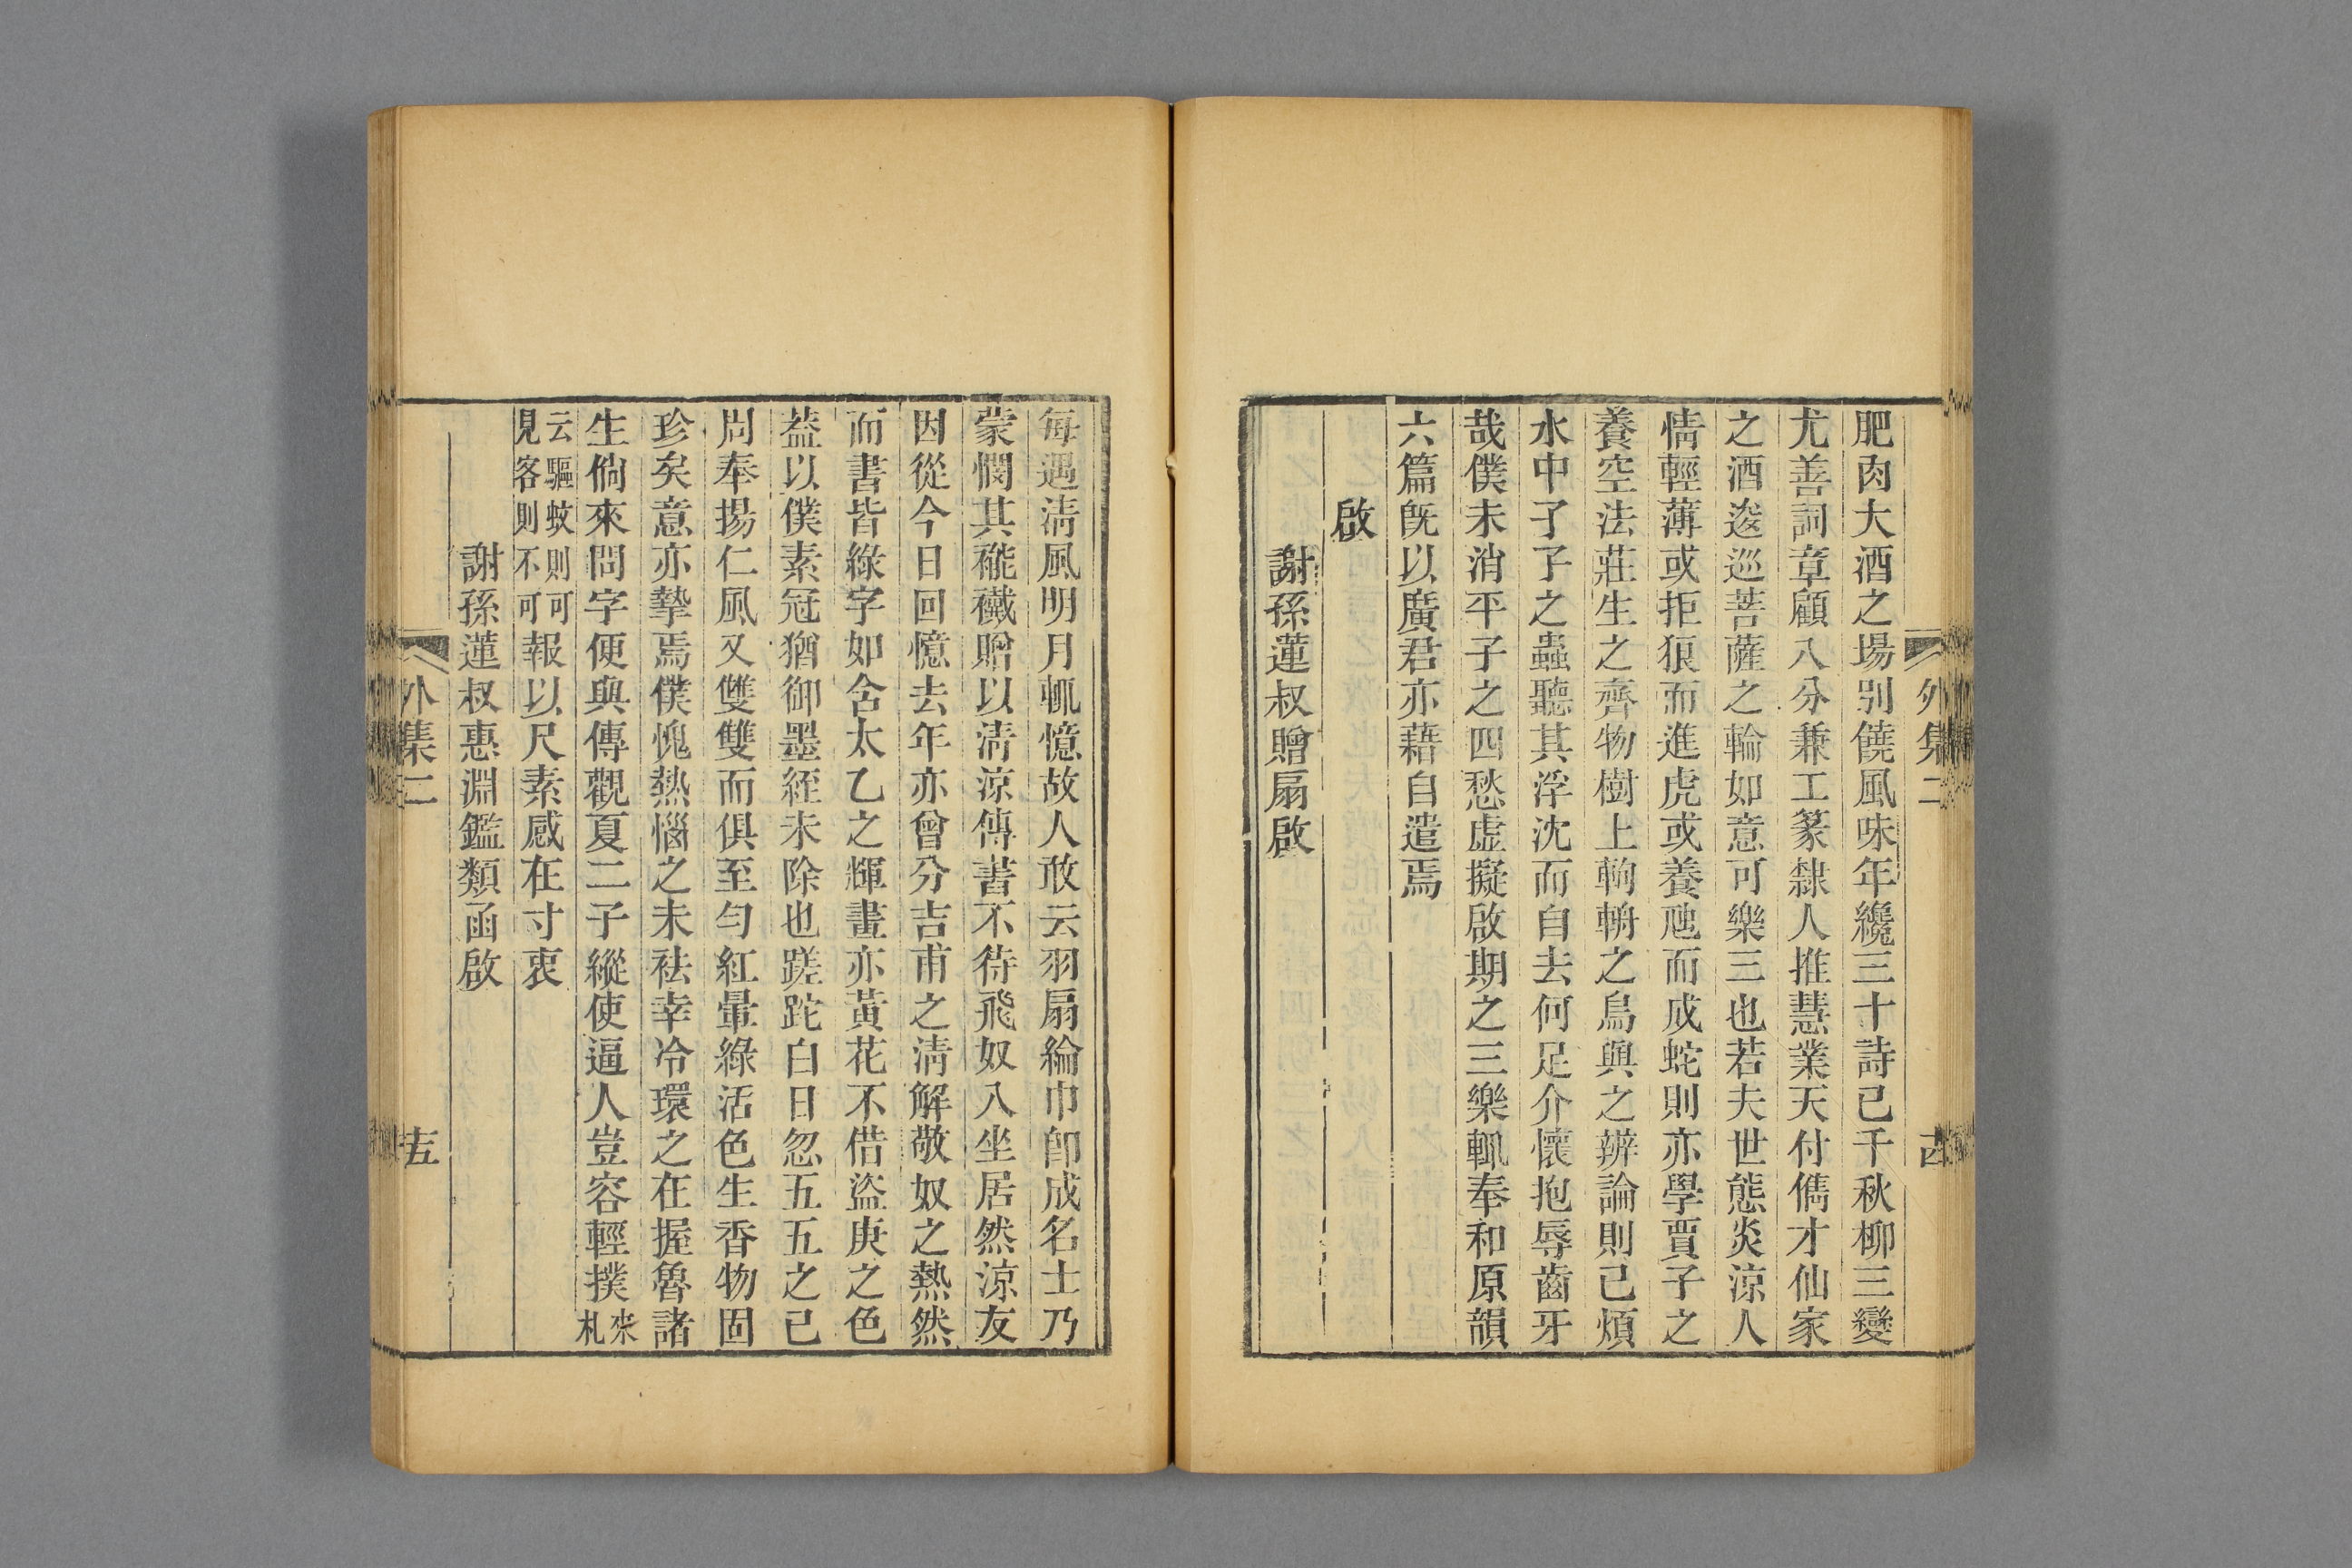 外集二
十四
肥肉大酒之場別饒風味年纔三十詩已千秋柳三變
尤善詞章顧八分兼工篆隸人推慧業天付儁才仙家
之酒逡巡菩薩之輪如意可樂三也若夫世態炎涼人
情輕薄或拒狼而進虎或養虺而成蛇則亦學賈子之
養空法莊生之齊物樹上輷輈之鳥與之辨論則已煩
水中孑孑之蟲聽其浮沈而自去何足介懷抱辱齒牙
哉僕未消平子之四愁虛擬啟期之三樂輒奉和原韻
六篇旣以廣君亦藉自遣焉
啟
謝孫蓮叔贈扇啟
每遇淸風明月輒憶故人敢云羽扇綸巾卽成名士乃
蒙憫其褦襶贈以淸涼傳書不待飛奴入坐居然涼友
因從今日回憶去年亦曾分吉甫之淸解敬奴之熱然
而書皆綠字如含太乙之輝畫亦黃花不借盜庚之色
葢以僕素冠猶御墨絰未除也蹉跎白日忽五五之已
周奉揚仁風又雙雙而俱至勻紅暈綠活色生香物固
珍矣意亦摯焉僕愧熱惱之未袪幸冷環之在握魯諸
生倘來問字便與傳觀夏二子縱使逼人豈容輕撲來札
云驅蚊則可見客則不可報以尺素感在寸衷
謝孫蓮叔惠淵鑑類函啟
外集二
十五